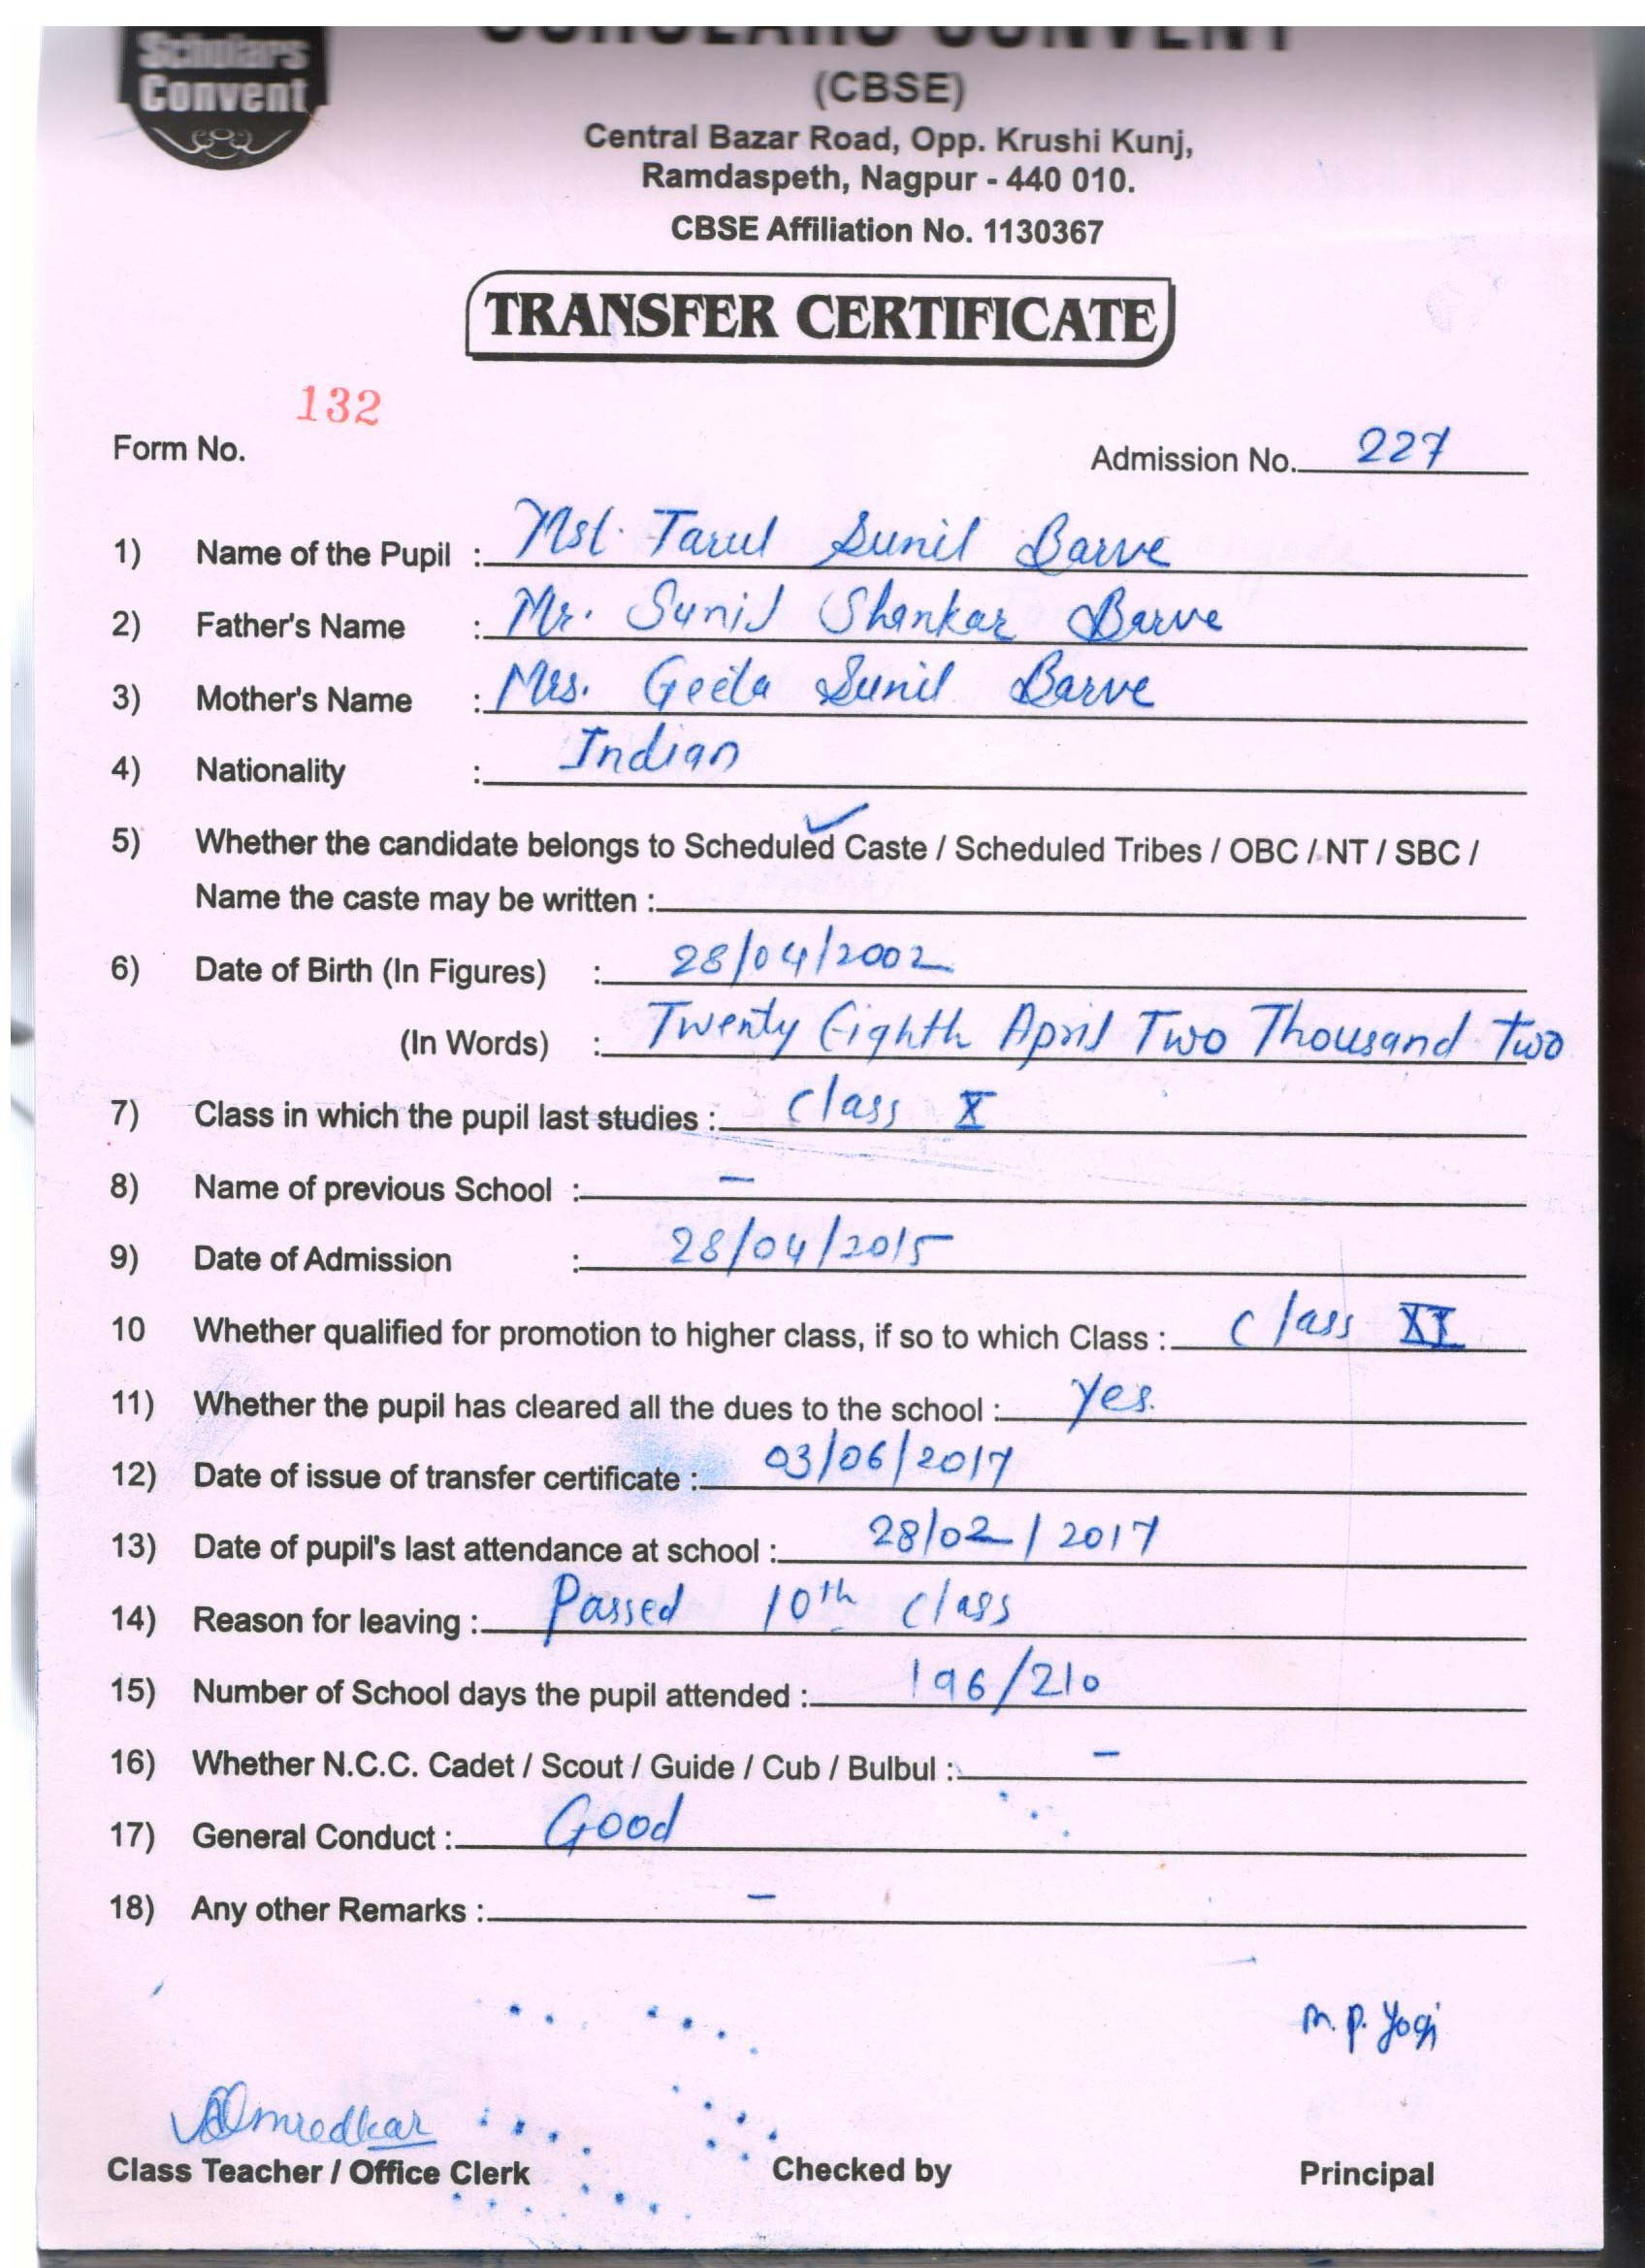 Scholars
Convent
SCHOLARS CONVENT
(CBSE)
Central Bazar Road, Opp. Krushi Kunj,
Ramdaspeth, Nagpur - 440 010.
CBSE Affiliation No. 1130367
TRANSFER CERTIFICATE
132
Form No.
Admission No. 227
1) Name of the Pupil : Mst. Tarul Sunil Barve
2) Father's Name : Mr. Sunil Shankar Barve
3) Mother's Name : Mrs. Geeta Sunil Barve
4) Nationality : Indian
5) Whether the candidate belongs to Scheduled Caste / Scheduled Tribes / OBC / NT / SBC /
Name the caste may be written :
6) Date of Birth (In Figures) : 28/04/2002
(In Words) : Twenty Eighth April Two Thousand Two
7) Class in which the pupil last studies : Class X
8) Name of previous School : –
9) Date of Admission : 28/04/2015
10 Whether qualified for promotion to higher class, if so to which Class : Class XI
11) Whether the pupil has cleared all the dues to the school : Yes.
12) Date of issue of transfer certificate : 03/06/2017
13) Date of pupil's last attendance at school : 28/02/2017
14) Reason for leaving : Passed 10th class
15) Number of School days the pupil attended : 196/210
16) Whether N.C.C. Cadet / Scout / Guide / Cub / Bulbul : –
17) General Conduct : Good
18) Any other Remarks : –
M.P. Yogi
Class Teacher / Office Clerk Checked by Principal